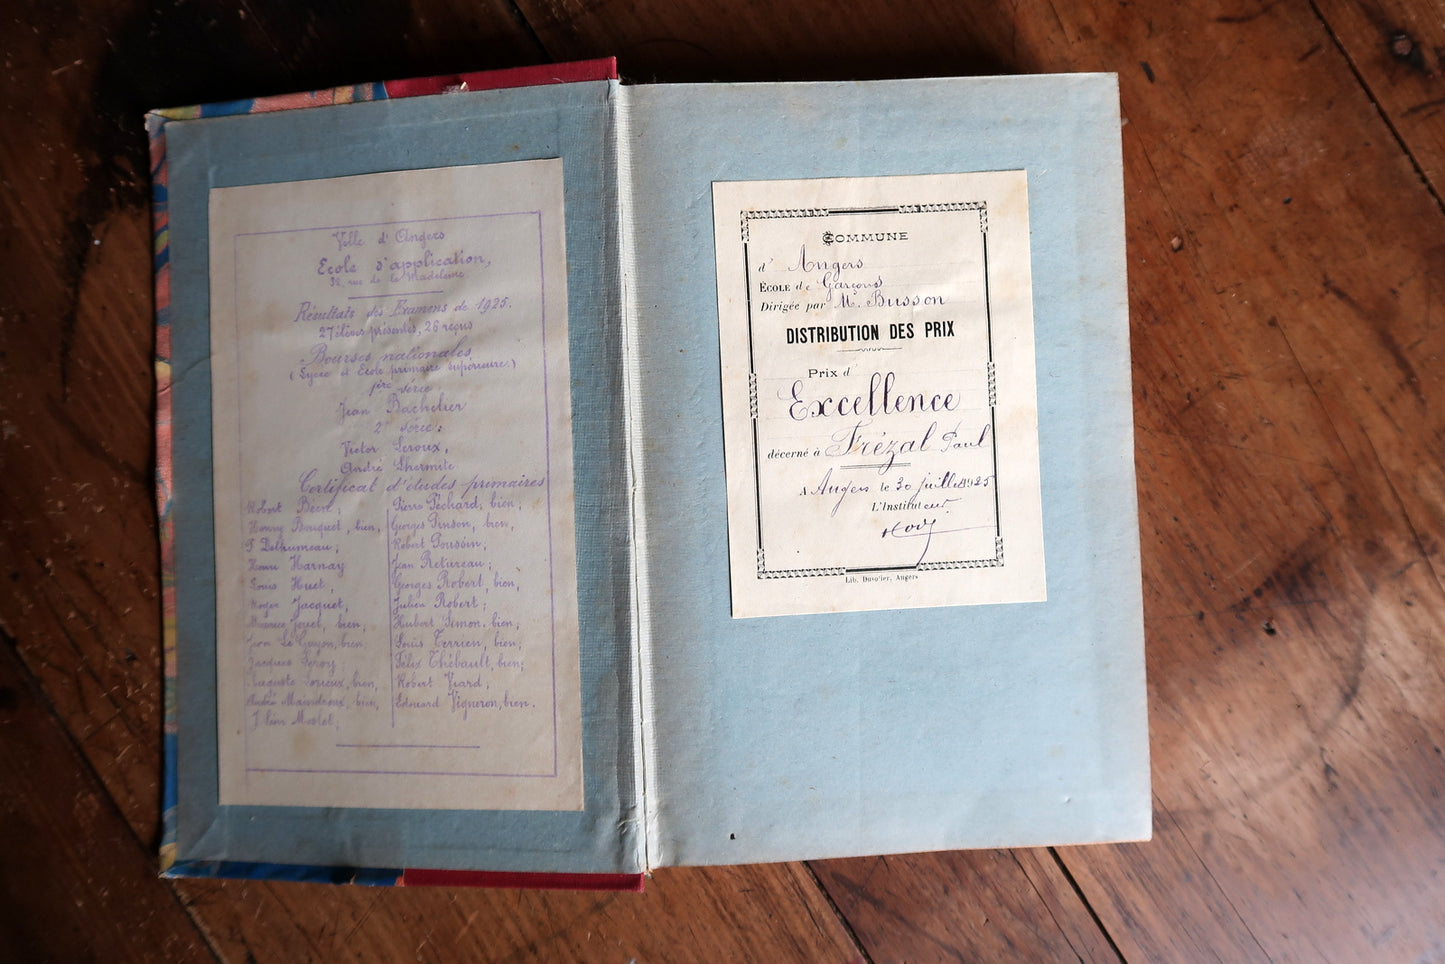 Ville d'Angers
Ecole d'application,
rue de la Madeleine
Résultats des Examens de 1925.
27 élèves présentés, 26 reçus
Bourses nationales
(Lycée et Ecole primaire supérieure)
1ère série
Jean Bachelier
2e série:
Victor Leroux,
André Lhermite
Certificat d'études primaires
Robert Bécu,
Henry Bouquet, bien,
P Delhumeau;
Henri Harnay
Louis Huet,
Roger Jacquet,
Maurice Jouet, bien;
Jean Le Guyon, bien,
Jacques Leroy;
Auguste Lorieux, bien,
André Maindroux, bien,
Morlet,
Pierre Péchard, bien;
Georges Pinson, bien,
Robert Poussin,
Jean Retureau;
Georges Robert, bien,
Julien Robert;
Hubert Simon, bien;
Louis Terrien, bien;
Félix Thébault, bien;
Robert Viard;
Edouard Vigneron, bien.
COMMUNE
d' Angers
ÉCOLE de Garçons
Dirigée par M. Busson
DISTRIBUTION DES PRIX
Prix d'
Excellence
décerné à Frézal Paul
A Angers le 30 juillet 1925
L'Instituteur.
Lib. Angers